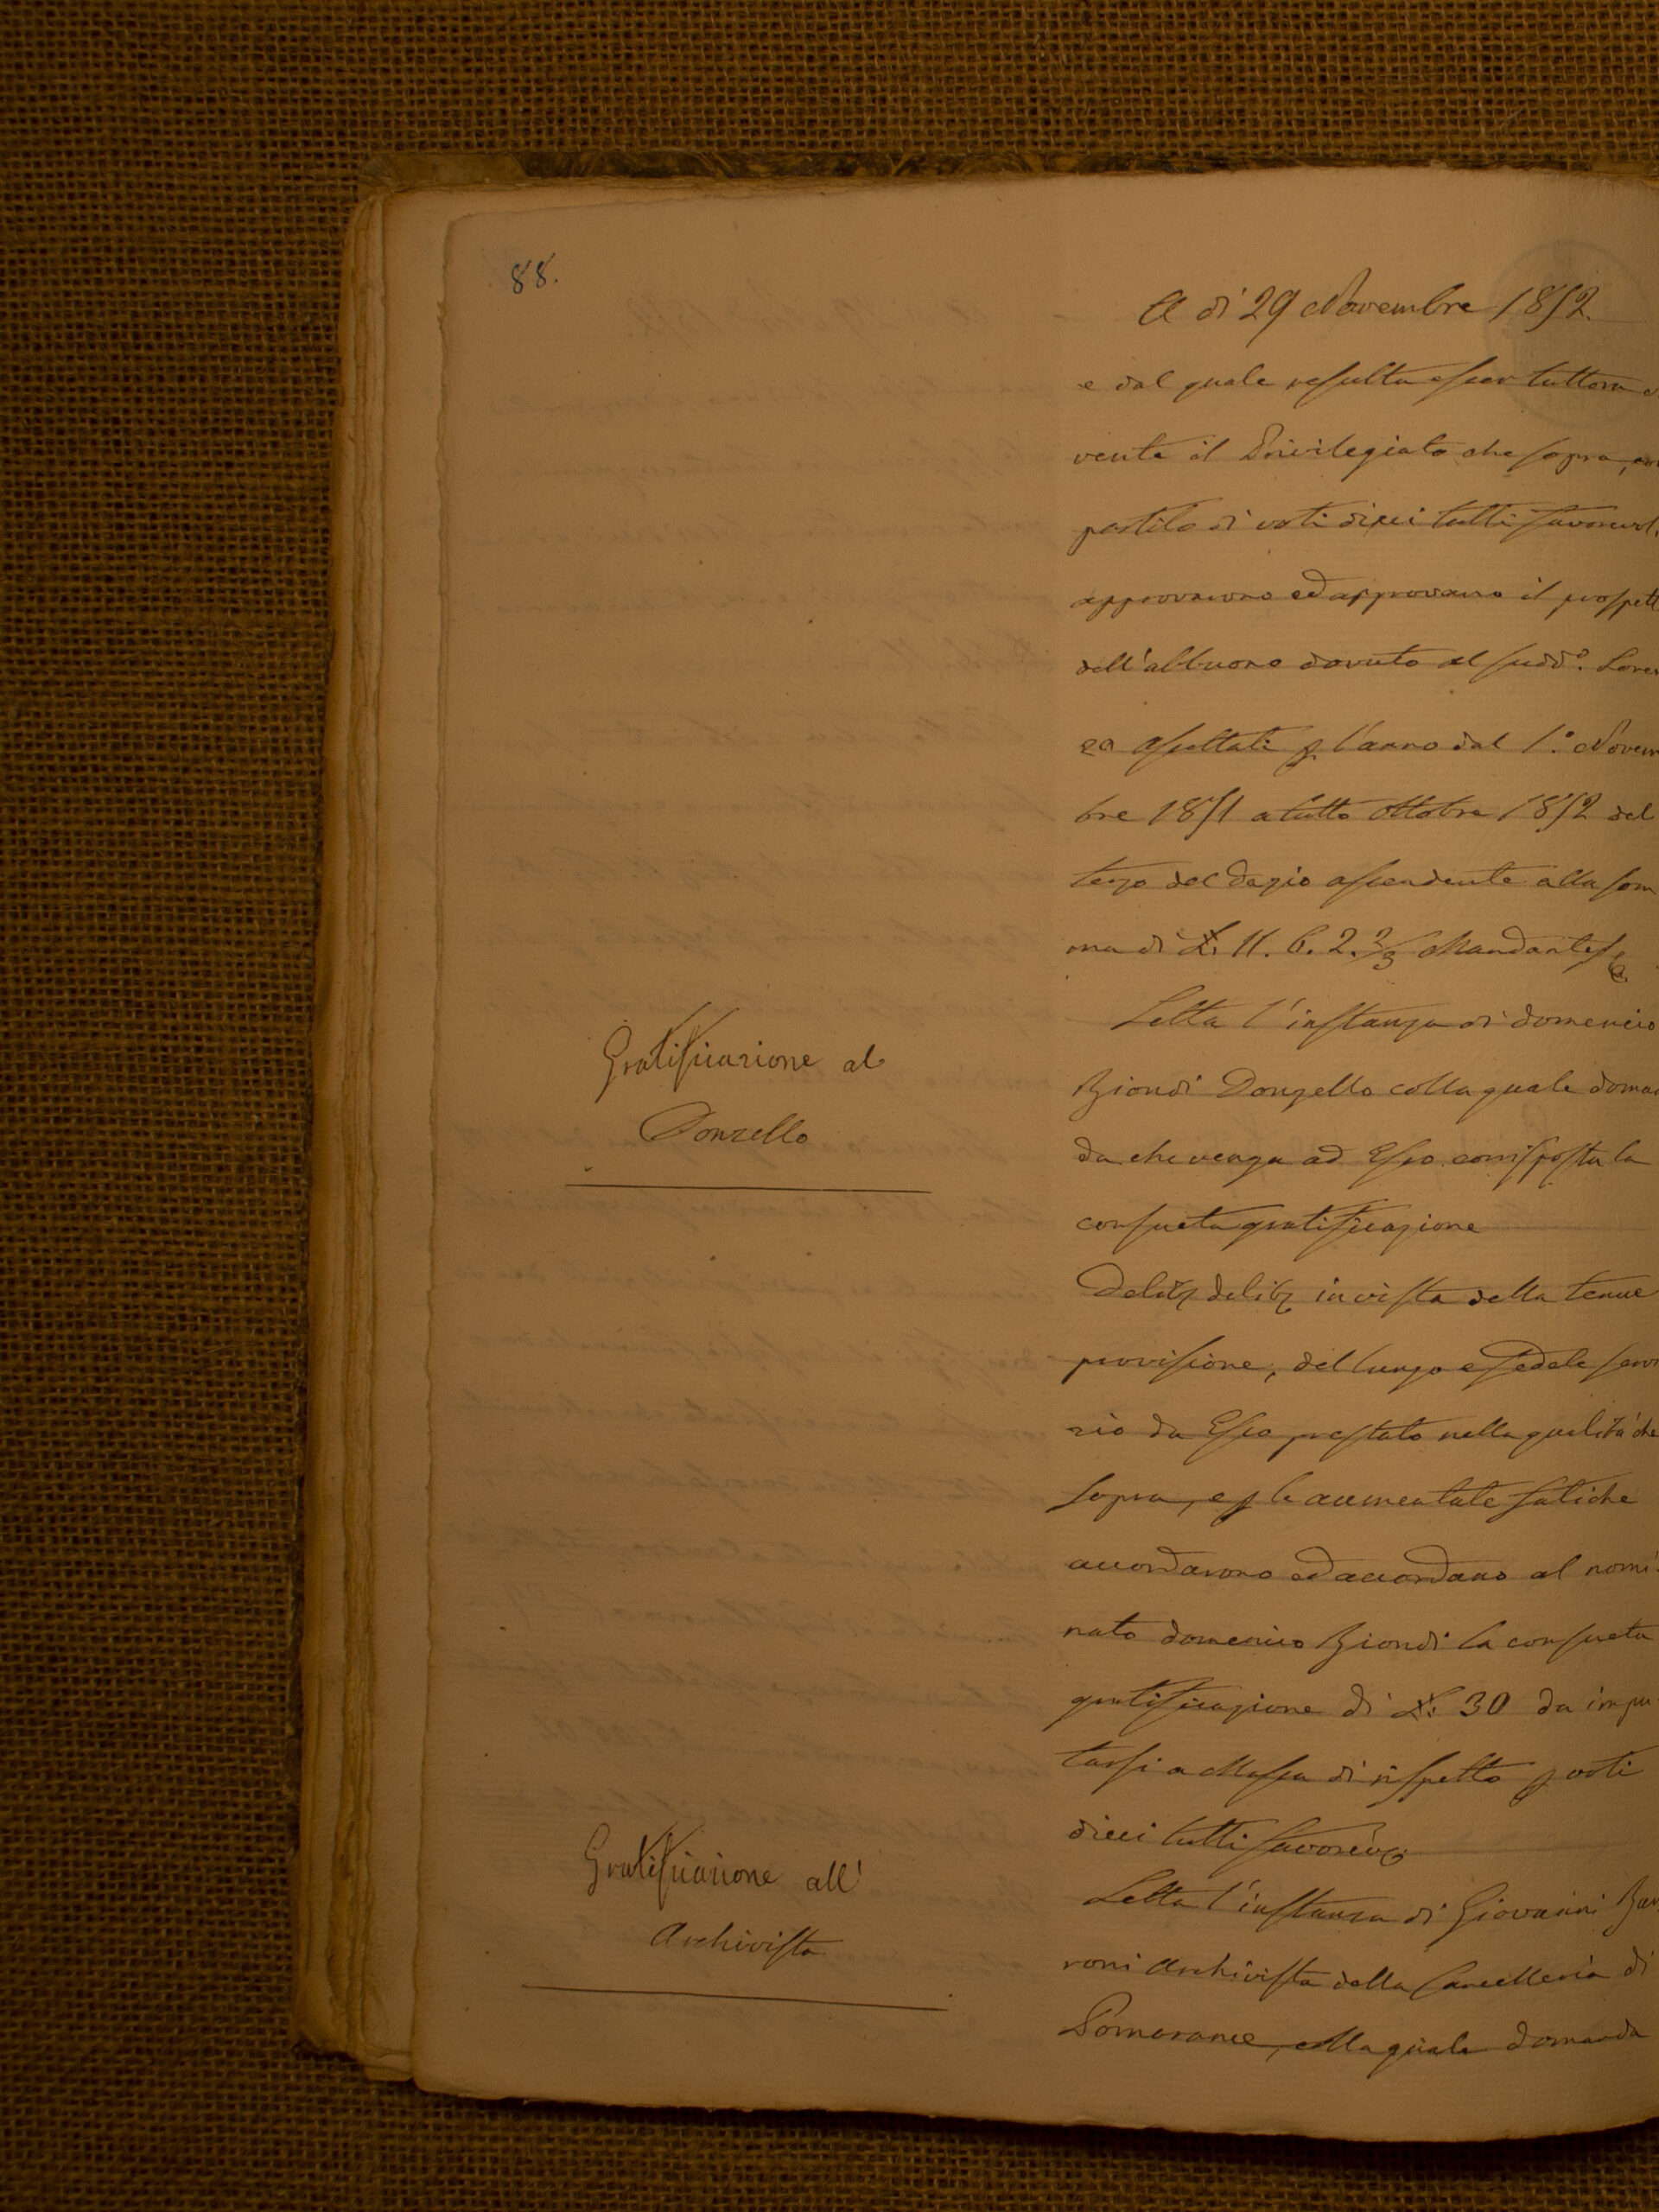 88.
A dì 29 Novembre 1852.
e dal quale resulta esser tuttora
vente il Privilegiato che sopra,
partito di voti dieci tutti favorevol.
approvarono ed approvano il prospett
dell'abbuono dovuto al sudd.º Loren
za per l'anno dal 1.º Novem
bre 1851 a tutto Ottobre 1852 del
terzo del Dazio ascendente alla som
ma di £. 11. 6. 2. 2/3 Mandantes
Letta l'instanza di Domenico
Biondi Donzello colla quale doman
da che venga ad Esso corrisposta la
Gratificazione al
Donzello
consueta gratificazione
Delib. delib. in vista della tenue
provisione, del lungo e fedele servi
zio da Esso prestato nella qualità che
sopra, e p le aumentate fatiche
accordarono ed accordano al nomi
nato Domenico Biondi la consueta
gratificazione di £. 30 da impu
tarsi a Massa di rispetto p voti
dieci tutti favorev.
Gratificazione all'
Archivista
Letta l'instanza di Giovanni Bar
roni Archivista della Cancelleria di
Pomarance, colla quale domanda